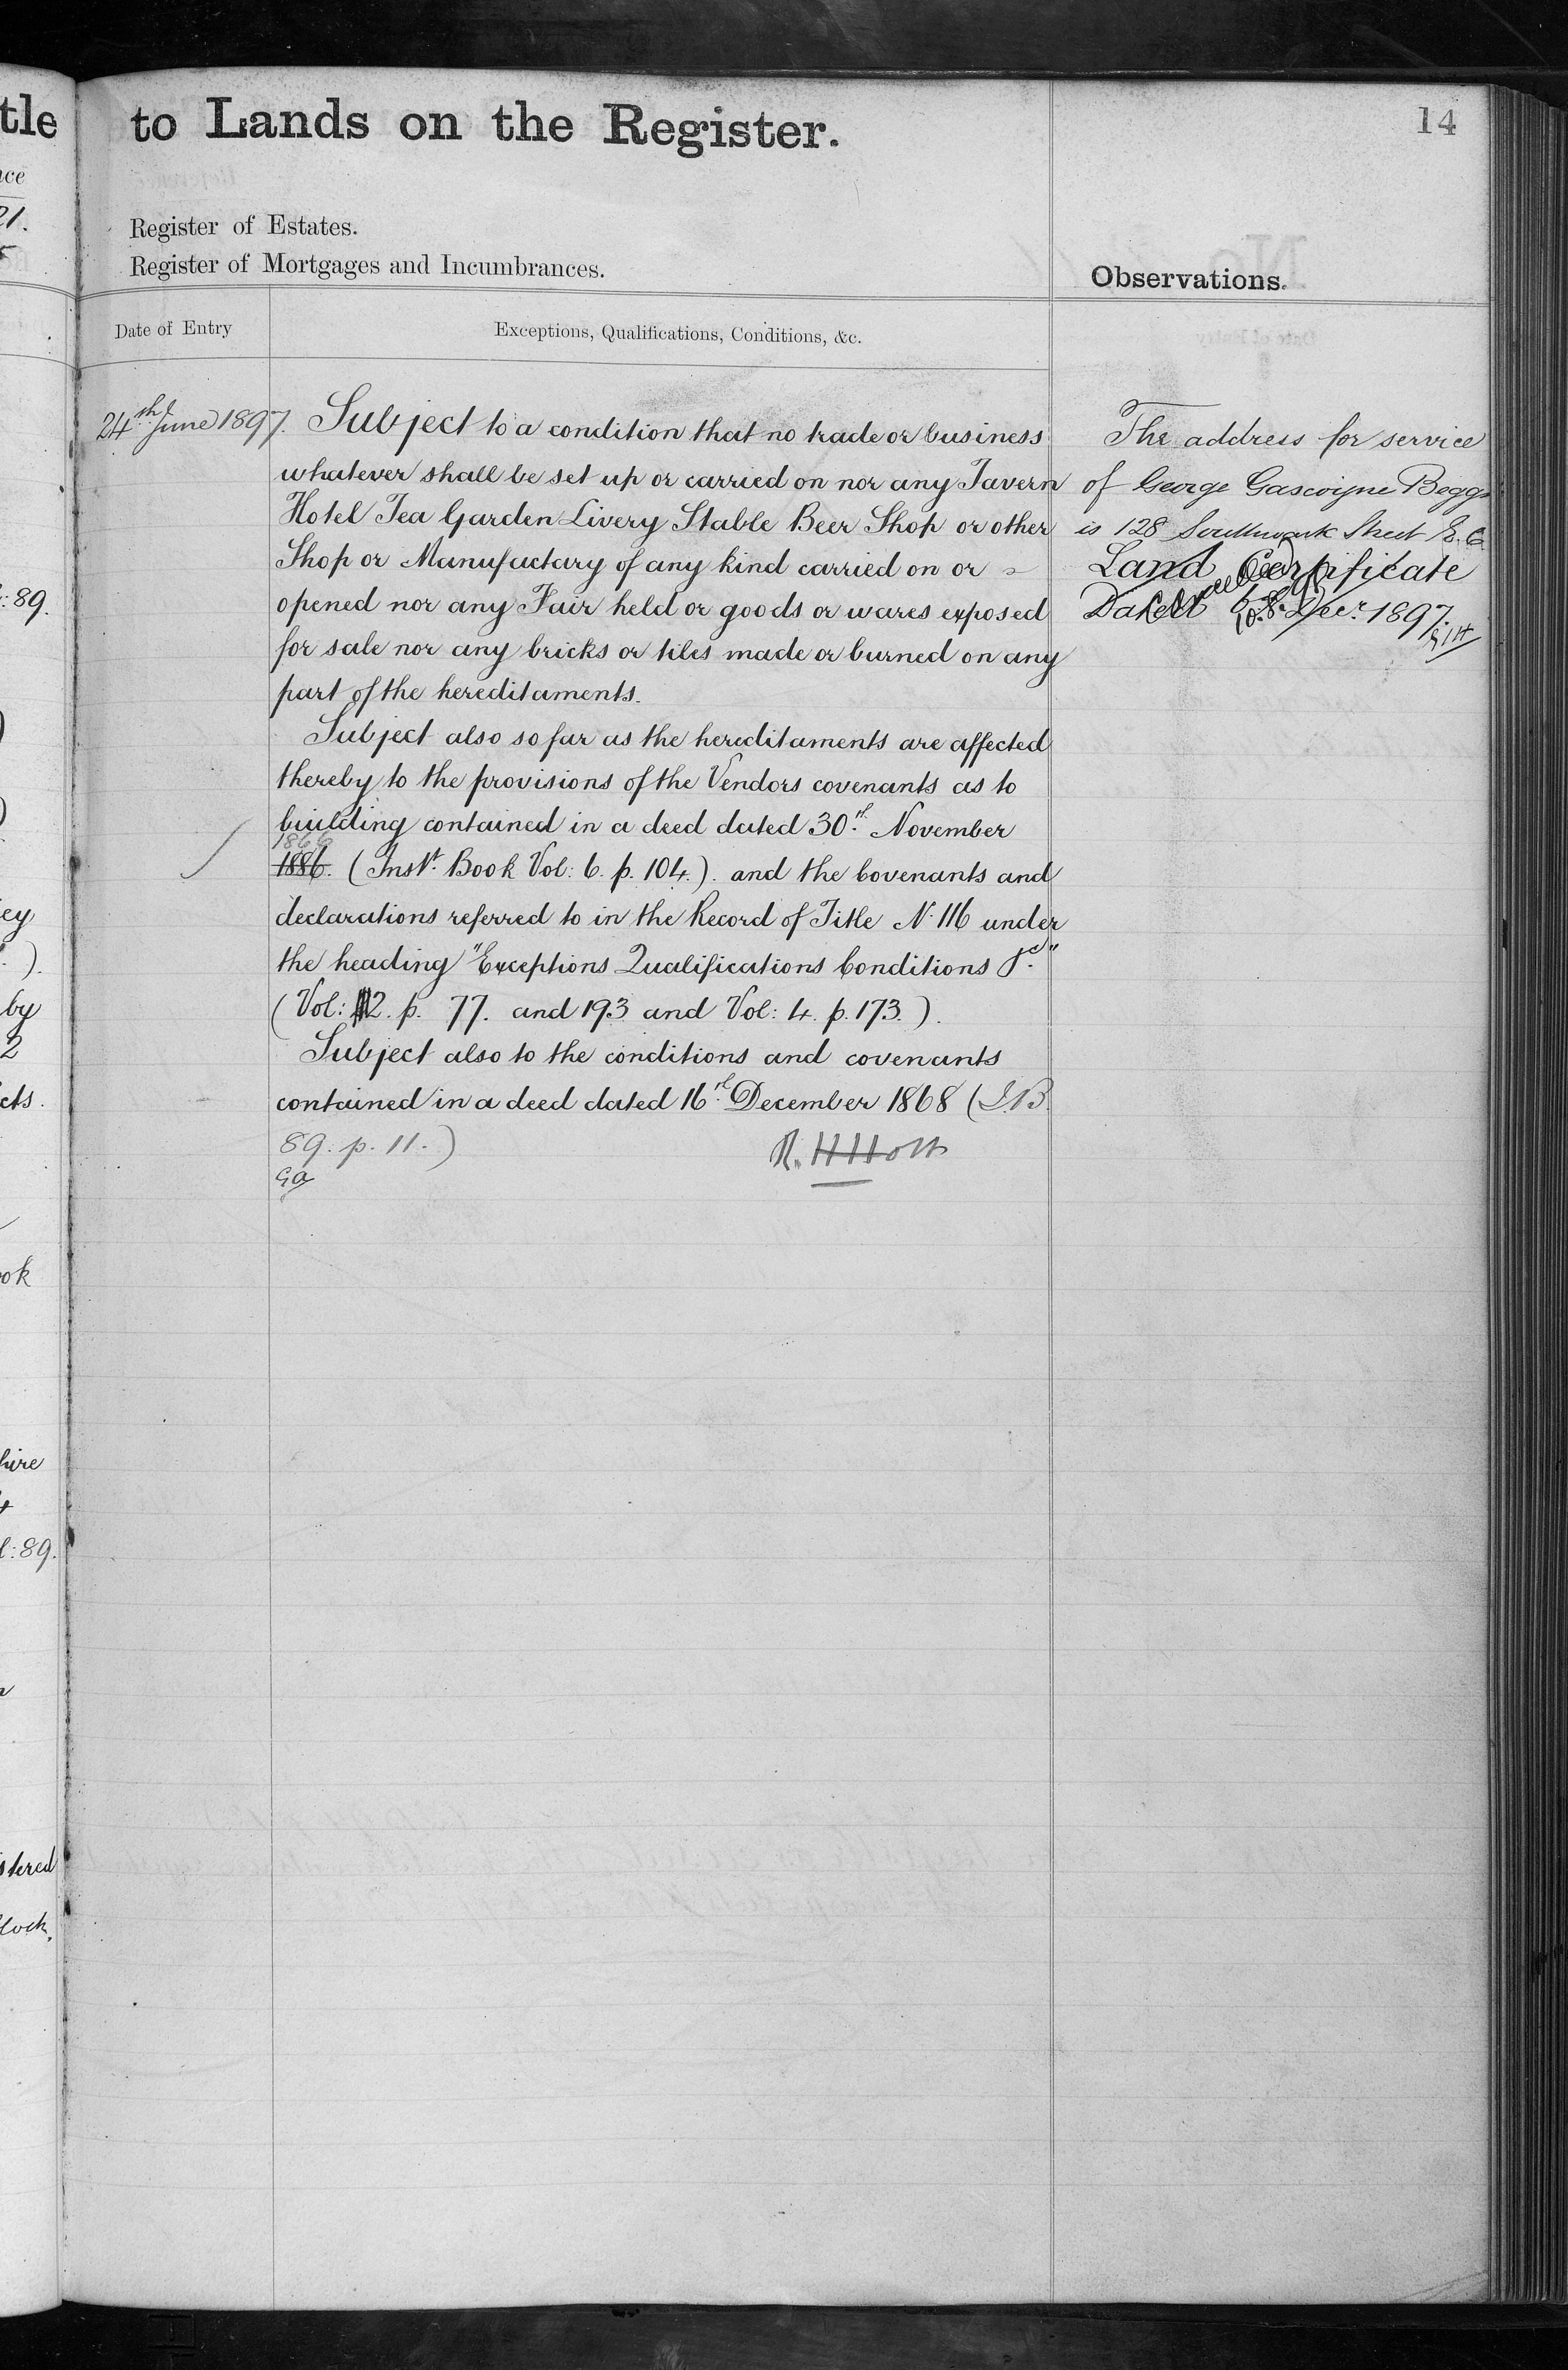 tle
to Lands on the Register.
14
nce
21.
Register of Estates.
Register of Mortgages and Incumbrances.
Observations.
Date of Entry
Exceptions, Qualifications, Conditions, &c.
24th June 1897.
Subject to a condition that no trade or business
whatever shall be set up or carried on nor any Tavern
Hotel Tea Garden Livery Stable Beer Shop or other
Shop or Manufactary of any kind carried on or
opened nor any Fair held or goods or wares exposed
for sale nor any bricks or tiles made or burned on any
part of the hereditaments.
Subject also so far as the hereditaments are affected
thereby to the provisions of the Vendors covenants as to
building contained in a deed dated 30th November
1866
1886. (Inst. Book Vol: 6. p. 104.). and the Covenants and
declarations referred to in the Record of Title No. 116 under
the heading "Exceptions Qualifications Conditions &c."
(Vol: 2. p. 77. and 193 and Vol: 4. p. 173.).
Subject also to the conditions and covenants
contained in a deed dated 16th December 1868 (I.B.
89. p. 11.)
R. H Holt
GA
The address for service
of George Gascoigne Beggs
is 128 Southwark Street S.E.
Land Certificate
Dated 6 Decr. 1897.
Cancelled
: 89.
ey
).
by
2
cts.
ok
hire
l: 89.
stered
lock.